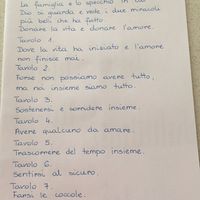 La famiglia è lo specchio in cui
Dio si guarda e vede i due miracoli
più belli che ha fatto.
Donare la vita e donare l'amore.
Tavolo 1.
Dove la vita ha iniziato e l'amore
non finisce mai.
Tavolo 2.
Forse non possiamo avere tutto,
ma noi insieme siamo tutto.
Tavolo 3.
Sostenersi e sorridere insieme.
Tavolo 4.
Avere qualcuno da amare.
Tavolo 5.
Trascorrere del tempo insieme.
Tavolo 6.
Sentirsi al sicuro.
Tavolo 7.
Farsi le coccole.